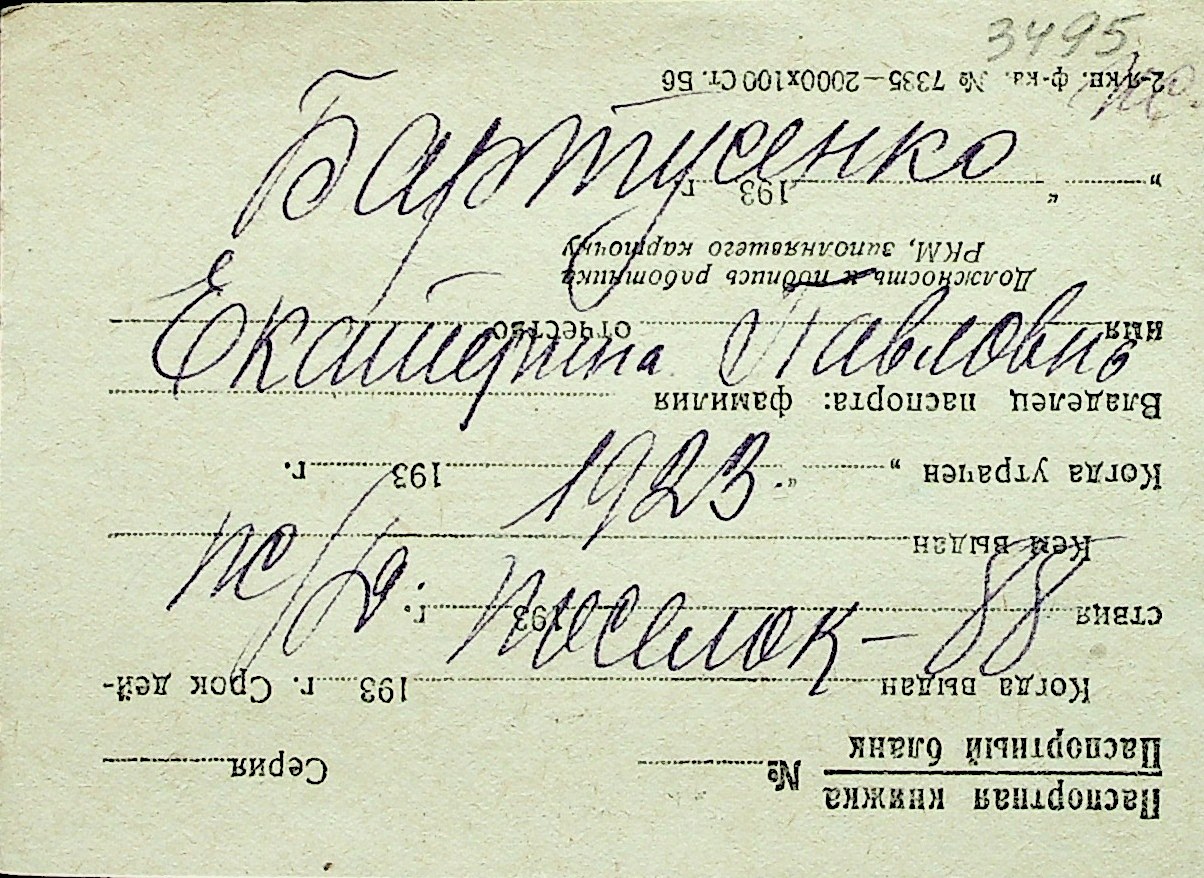 3495
Бартусенко
Екатерина Павловна
1923
ж/д. поселок – 88
Паспортная книжка
Паспортный бланк № Серия
Когда выдан 193 г. Срок дей-
ствия 193 г.
Кем выдан
Когда утрачен „ “ 193 г.
Владелец паспорта: фамилия
имя отчество
Должность и подпись работника
РКМ, заполнявшего карточку
„ “ 193 г.
2-я кн. ф-ка. № 7335—2000х100 Ст. Б6